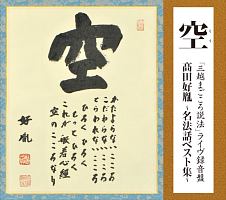 空
くう
「三越まごころ説法」ライヴ録音盤
高田好胤
〜名法話ベスト集〜
空
かたよらないこころ
こだわらないこころ
とらわれないこころ
ひろく ひろく
もっと ひろく
これが 般若心経
空のこころなり
好胤